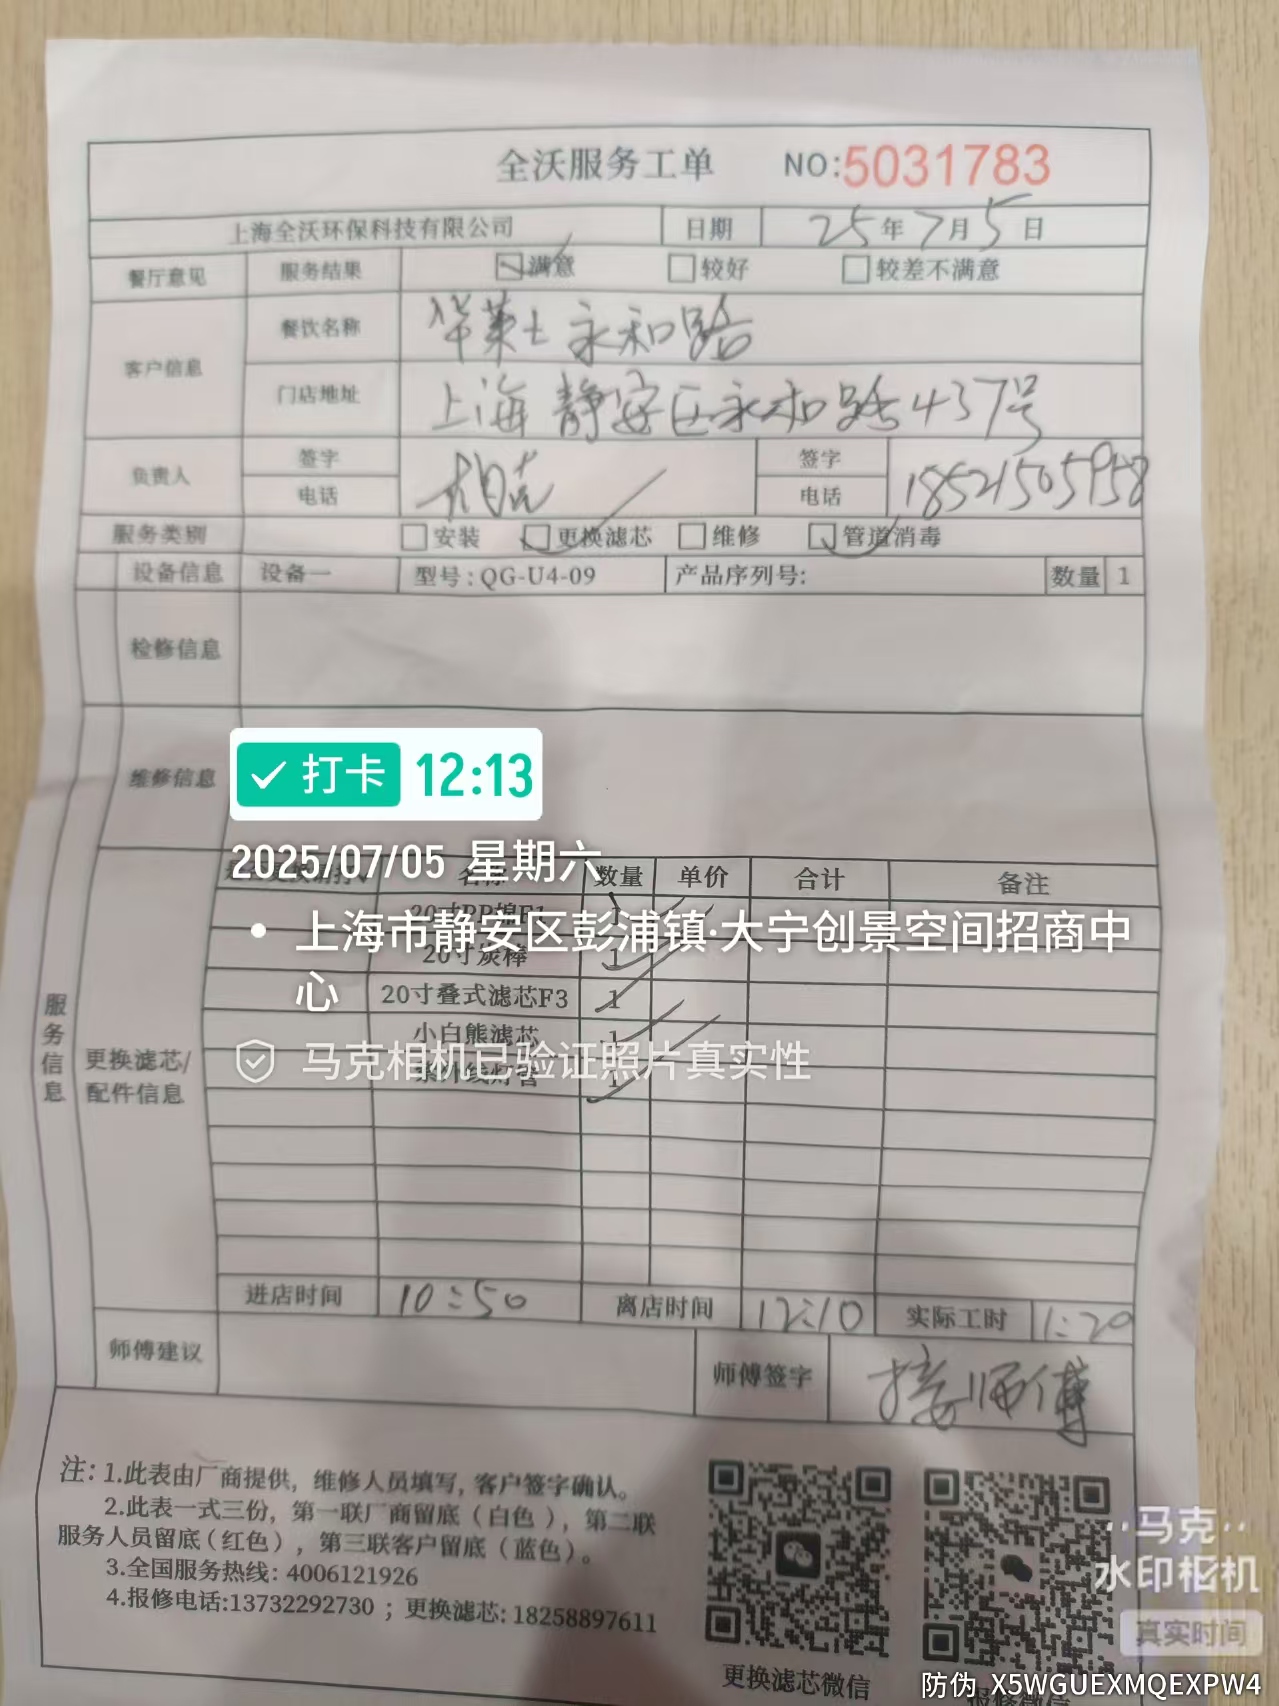 全沃服务工单 NO:5031783
上海全沃环保科技有限公司 日期 25年7月5日
餐厅意见 服务结果 满意 较好 较差不满意
客户信息 餐饮名称 华莱士永和路
门店地址 上海静安区永和路437号
负责人 签字 签字
电话 电话 18521505958
服务类别 安装 更换滤芯 维修 管道消毒
设备信息 设备一 型号:QG-U4-09 产品序列号: 数量 1
检修信息
维修信息
打卡 12:13
2025/07/05 星期六
名称 数量 单价 合计 备注
20寸PP棉F1 1
上海市静安区彭浦镇·大宁创景空间招商中
心
20寸炭棒 1
20寸叠式滤芯F3 1
小白熊滤芯 1
马克相机已验证照片真实性
紫外线灯管 1
服务信息
更换滤芯/
配件信息
进店时间 10:50 离店时间 12:10 实际工时 1:20
师傅建议 师傅签字 师傅
注:1.此表由厂商提供，维修人员填写,客户签字确认。
2.此表一式三份，第一联厂商留底（白色），第二联
服务人员留底（红色），第三联客户留底（蓝色）。
3.全国服务热线: 4006121926
4.报修电话:13732292730 ; 更换滤芯: 18258897611
更换滤芯微信
报修微信
马克
水印相机
真实时间
防伪 X5WGUEXMQEXPW4